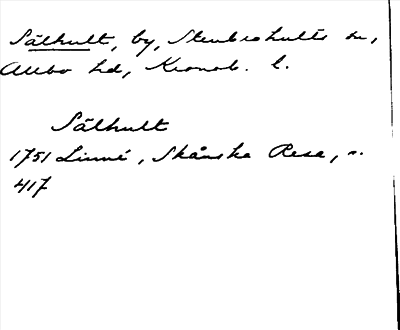 Sälhult, by, Stenbrohults sn,
Allbo hd, Kronob. l.
Sälhult
1751 Linné, Skånska Resa, s.
417